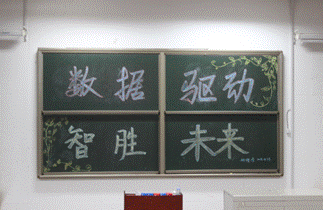 数据 驱动
智胜 未来